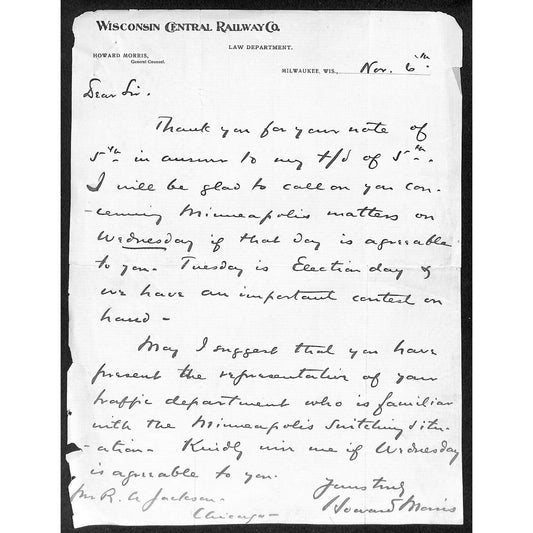 WISCONSIN CENTRAL RAILWAY CO.
LAW DEPARTMENT.
HOWARD MORRIS,
General Counsel.
MILWAUKEE, WIS., Nov. 6th
Dear Sir.
Thank you for your note of
5th in answer to my of 5th.
I will be glad to call on you con-
-cerning Minneapolis matters on
Wednesday if that day is agreeable
to you - Tuesday is Election day &
we have an important contest on
hand -
May I suggest that you have
present the representative of your
traffic department who is familiar
with the Minneapolis switching situ-
-ation - Kindly wire me if Wednesday
is agreeable to you.
Yours truly
Mr R. A. Jackson -
Howard Morris
Chicago -